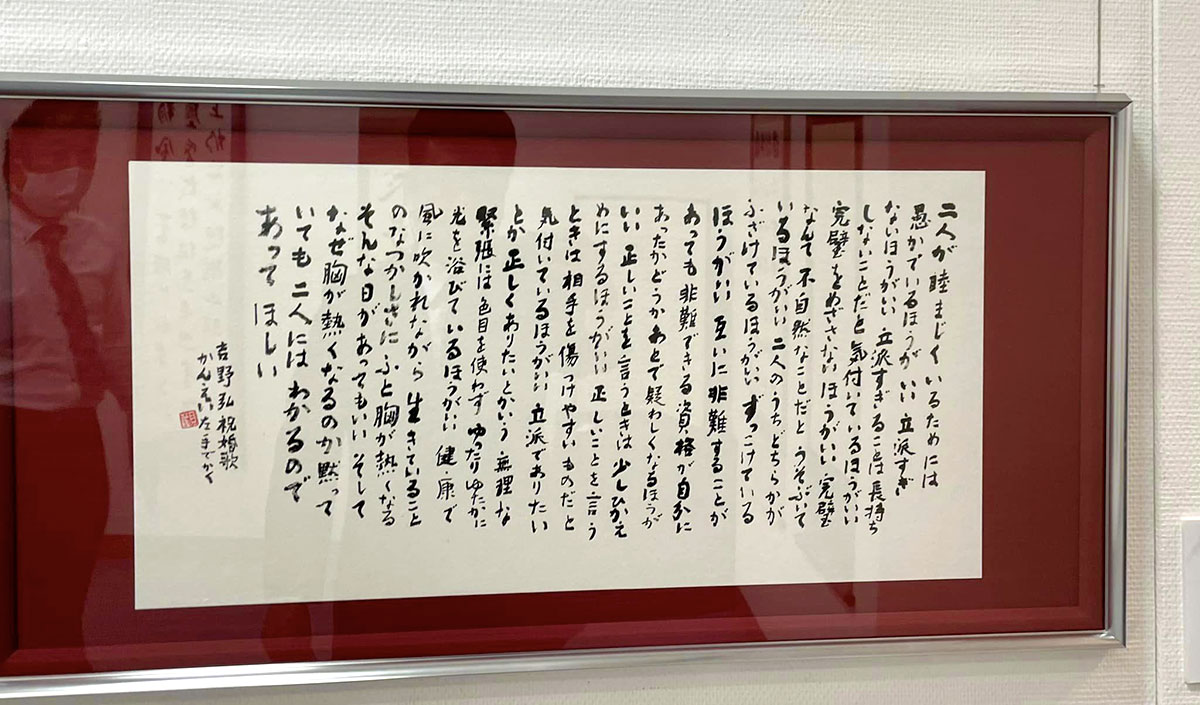 二人が睦まじくいるためには
愚かでいるほうがいい 立派すぎ
ないほうがいい 立派すぎることは長持ち
しないことだと気付いているほうがいい
完璧をめざさないほうがいい 完璧
なんて不自然なことだと うそぶいて
いるほうがいい 二人のうちどちらかが
ふざけているほうがいい ずっこけている
ほうがいい 互いに非難することが
あっても非難できる資格が自分に
あったかどうか あとで疑わしくなるほうが
いい 正しいことを言うときは 少しひかえ
めにするほうがいい 正しいことを言う
ときは相手を傷つけやすいものだと
気付いているほうがいい 立派でありたい
とか正しくありたいとかいう 無理な
緊張には色目を使わず ゆったりゆたかに
光を浴びているほうがいい 健康で
風に吹かれながら 生きていること
のなつかしさに ふと胸が熱くなる
そんな日があってもいい そして
なぜ胸が熱くなるのか黙って
いても二人にはわかるので
あってほしい
吉野弘 祝婚歌
左手でかく